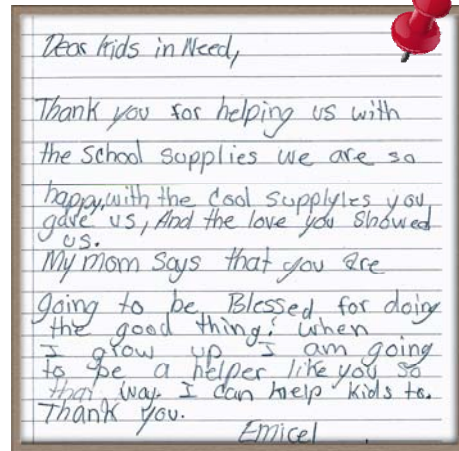 Dear Kids in Need,
Thank you for helping us with
the school supplies we are so
happy, with the cool supplyles you
gave us, And the love you showed
us.
My mom says that you are
going to be Blessed for doing
the good thing! when
I grow up I am going
to be a helper like you so
that way I can help kids to.
Thank you.
Emicel